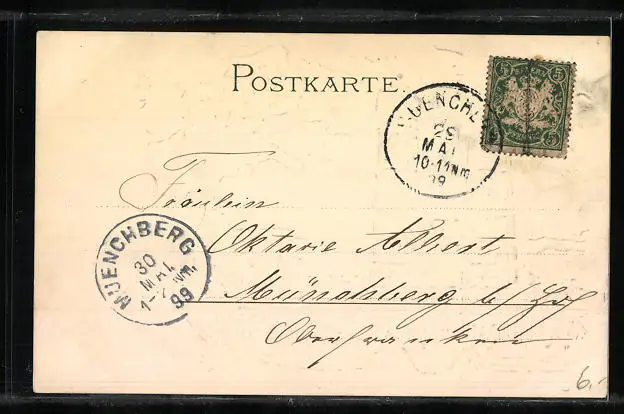 POSTKARTE.
5 5
MUENCHE
29
MAI
10-11 NM.
99
Fräulein
Oktavie Albert
Münchberg b/ Hof
Oberfranken
MUENCHBERG
30
MAI.
1-2 NM.
99
6.-